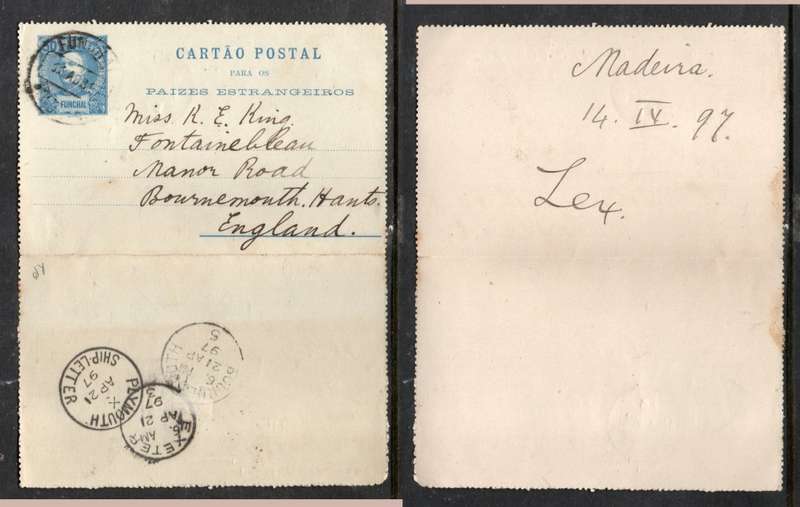 FUNCHAL
CARTÃO POSTAL
PARA OS
PAIZES ESTRANGEIROS
Miss K. E. King
Fontainebleau
Manor Road
Bournemouth. Hants.
England.
PLYMOUTH
X
AP 21
97
SHIP-LETTER
EXETER
AM
AP 21
97
21 AP
97
5
Madeira.
14. IV. 97.
Lex.